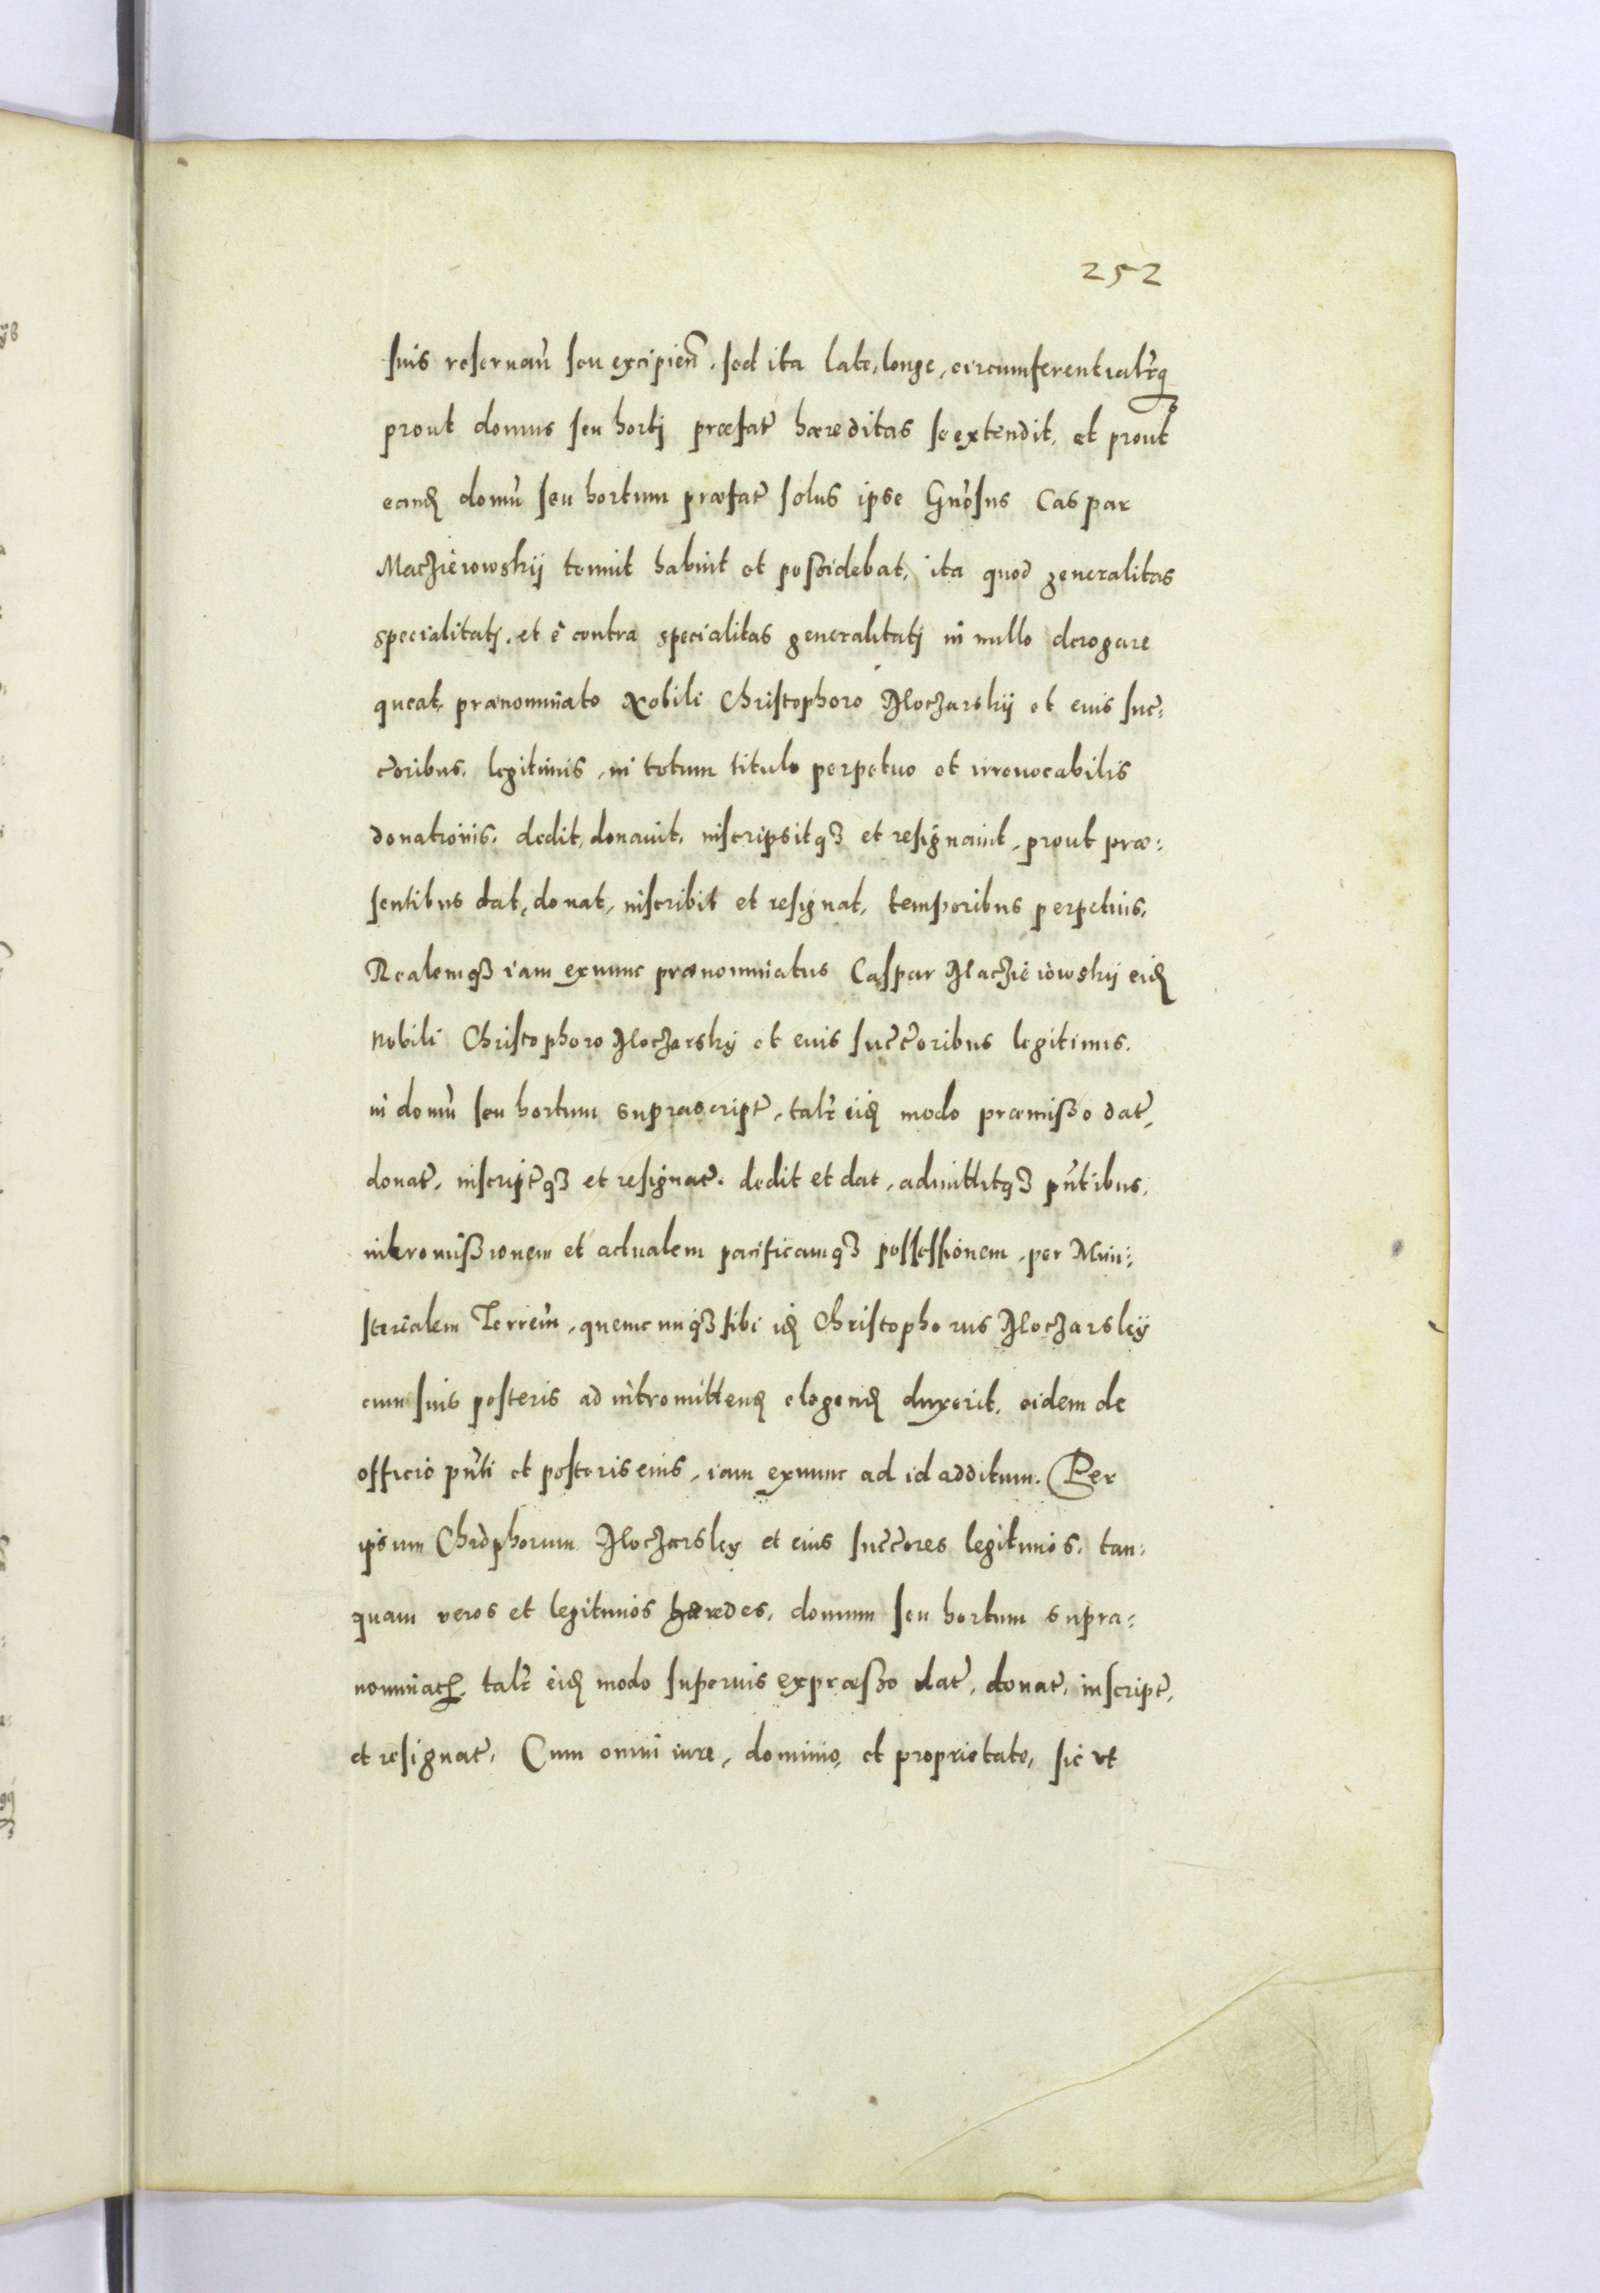 252
suis reseruan̄ seu excipien̄, sed ita late, longe, circumferentialr̄q₃
prout domus seu hortj præfat̄ hæreditas se extendit, et prout
eand̄ domū seu hortum præfat̄ solus ipse Gn̄osus Caspar
Maczieiowskij tenuit habuit et possidebat, ita quod generalitas
specialitatj, et è contra specialitas generalitatj in nullo derogare
queat, prænominato Nobili Christophoro Moczarskij et eius suc:
c̄oribus, legitimis, in totum titulo perpetuo et irreuocabilis
donationis, dedit, donauit, inscripsitq₃ et resignauit, prout præ:
sentibus dat, donat, inscribit et resignat, temporibus perpetuis.
Realemq₃ iam exnunc prænominatus Caspar Maczieiowskij eid̄
Nobili Christophoro Moczarskÿ et eius succ̄oribus legitimis.
in domū seu hortum suprascript̄, talr̄ eid̄ modo præmisso dat̄,
donat̄, inscript̄q₃ et resignat̄. dedit et dat, admittitq₃ pn̄tibus,
intromissionem et actualem pacificamq₃ possessionem, per Mini:
sterialem Terrem̄, quemcunq₃ sibi id̄ Christophorus Moczarskÿ
cum suis posteris ad intromitten̄d elegend̄ duxerit, eidem de
officio pn̄ti et posteris eius, iam exnunc ad id additum. Per
ipsum Chr̄ophorum Moczarskÿ et eius succ̄ores legitimos, tan:
quam veros et legitimos hæredes, domum seu hortum supra:
nominat̄, talr̄ eid̄ modo superius expræsso dat̄, donat̄, inscript̄,
et resignat̄, Cum omni iure, dominio, et proprietate, sic vt